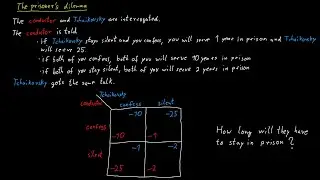 The prisoner's dilemma
The conductor and Tchaikovsky are interrogated.
The conductor is told
• if Tchaikovsky stays silent and you confess, you will serve 1 year in prison and Tchaikovsky
will serve 25.
• if both of you confess, both of you will serve 10 years in prison
• if both of you stay silent, both of you will serve 2 years in prison
Tchaikovsky gets the same talk.
Tchaikovsky
conductor
confess silent
-10 -25
confess
-10 -1
-1 -2
silent
-25 -2
How long will they have
to stay in prison?